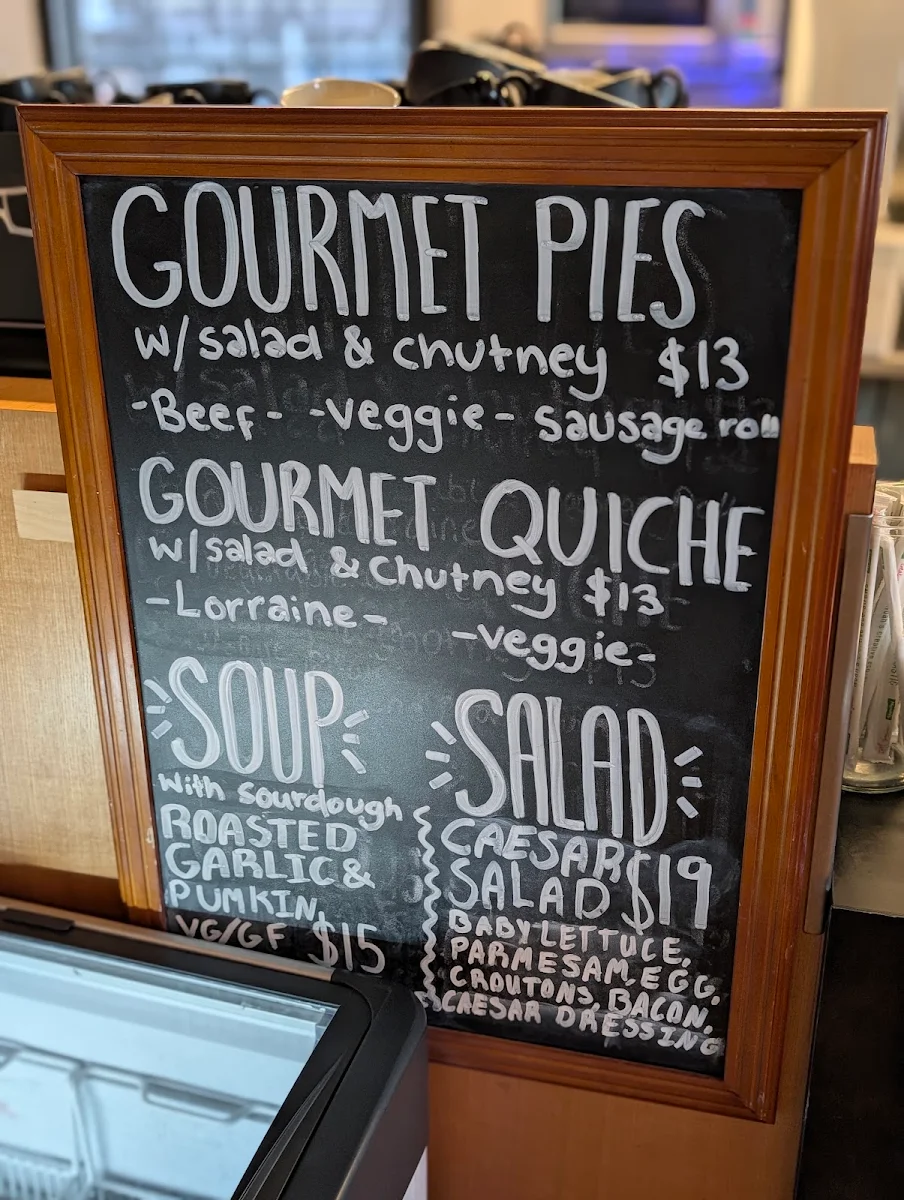 GOURMET PIES
w/salad & chutney $13
-Beef- -veggie- sausage roll
GOURMET QUICHE
w/salad & chutney $13
-Lorraine- -veggie-
SOUP
with sourdough
ROASTED
GARLIC &
PUMKIN,
VG/GF $15
SALAD
CAESAR
SALAD $19
BABY LETTUCE,
PARMESAM, EGG,
CROUTONS, BACON,
CAESAR DRESSING